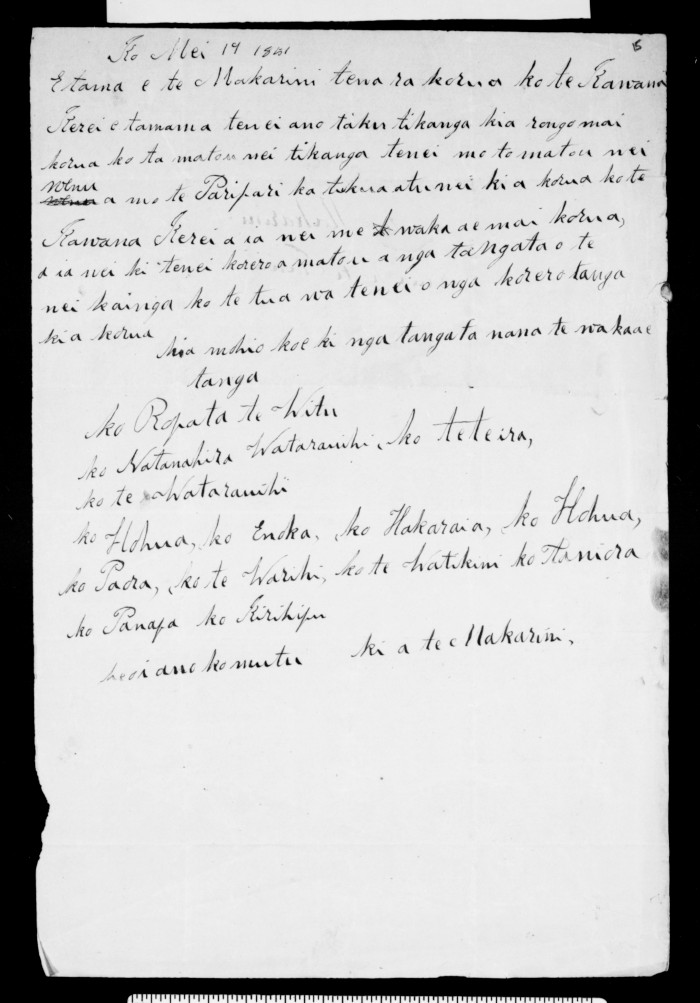 Ko Mei 14 1851
E tama e te Makarini tena ra korua ko te Kawana
Kerei e tamama tenei ano taku tikanga kia rongo mai
korua ko ta matou nei tikanga tenei mo to matou nei
wenu
a mo te Paripari ka tukua atu nei ki a korua ko te
Kawana Kerei a ia nei me waka ae mai korua,
a ia nei ki tenei korero a matou a nga tangata o te
nei kainga ko te tua wa tenei o nga korero tanga
ki a korua
kia mohio koe ki nga tangata nana te wakaae
tanga
ko Ropata te Witu
ko Natanahira Wataranihi, ko teteira,
ko te Wataranihi
ko Hohua, ko Enoka, ko Hakaraia, ko Hohua,
ko Paora, ko te Warihi, ko te Watikini ko Taniora
ko Panapa ko Kirihipu
heoi ano ko mutu ki a te Makarini,